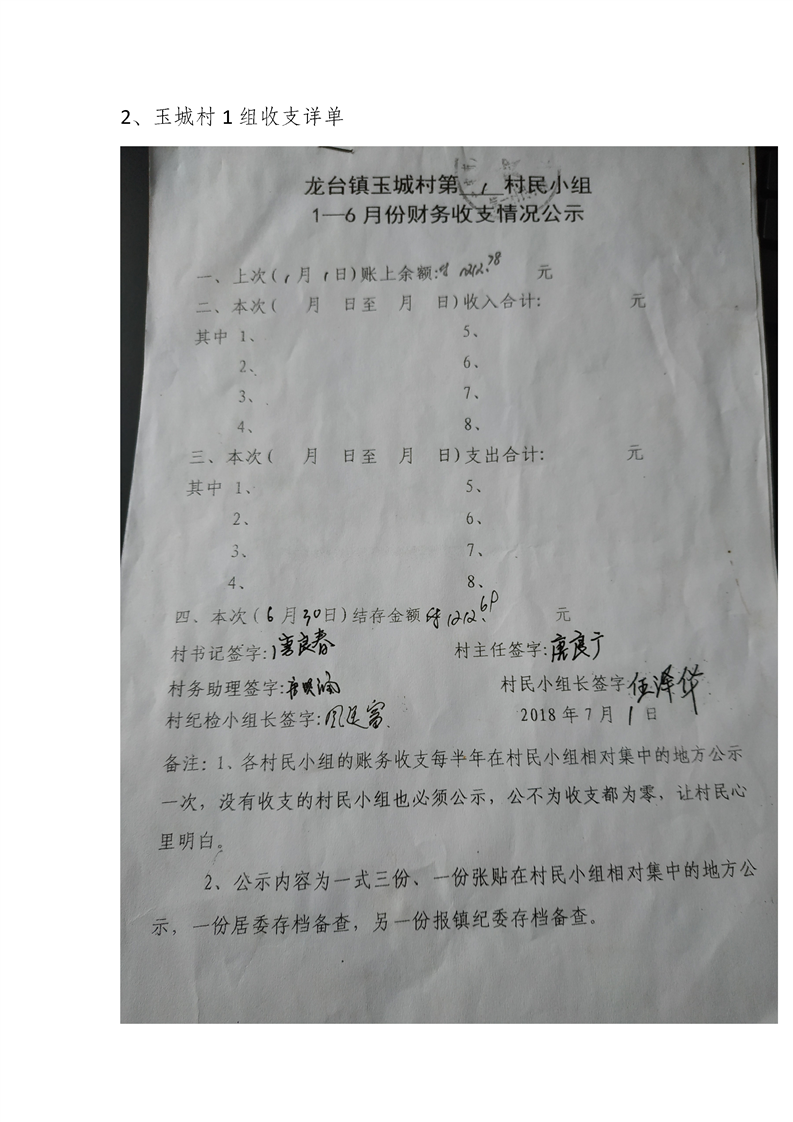 2、玉城村1组收支详单
龙台镇玉城村第 1 村民小组
1—6月份财务收支情况公示
一、上次(1月1日)账上余额:¥1212.78 元
二、本次( 月 日至 月 日)收入合计: 元
其中 1、 5、
2、 6、
3、 7、
4、 8、
三、本次( 月 日至 月 日)支出合计: 元
其中 1、 5、
2、 6、
3、 7、
4、 8、
四、本次(6月30日)结存金额 ¥1212.69 元
村书记签字:唐良春 村主任签字:唐良广
村务助理签字: 村民小组长签字 伍泽华
村纪检小组长签字: 2018年7月1日
备注:1、各村民小组的账务收支每半年在村民小组相对集中的地方公示
一次,没有收支的村民小组也必须公示,公不为收支都为零,让村民心
里明白。
2、公示内容为一式三份、一份张贴在村民小组相对集中的地方公
示,一份居委存档备查,另一份报镇纪委存档备查。